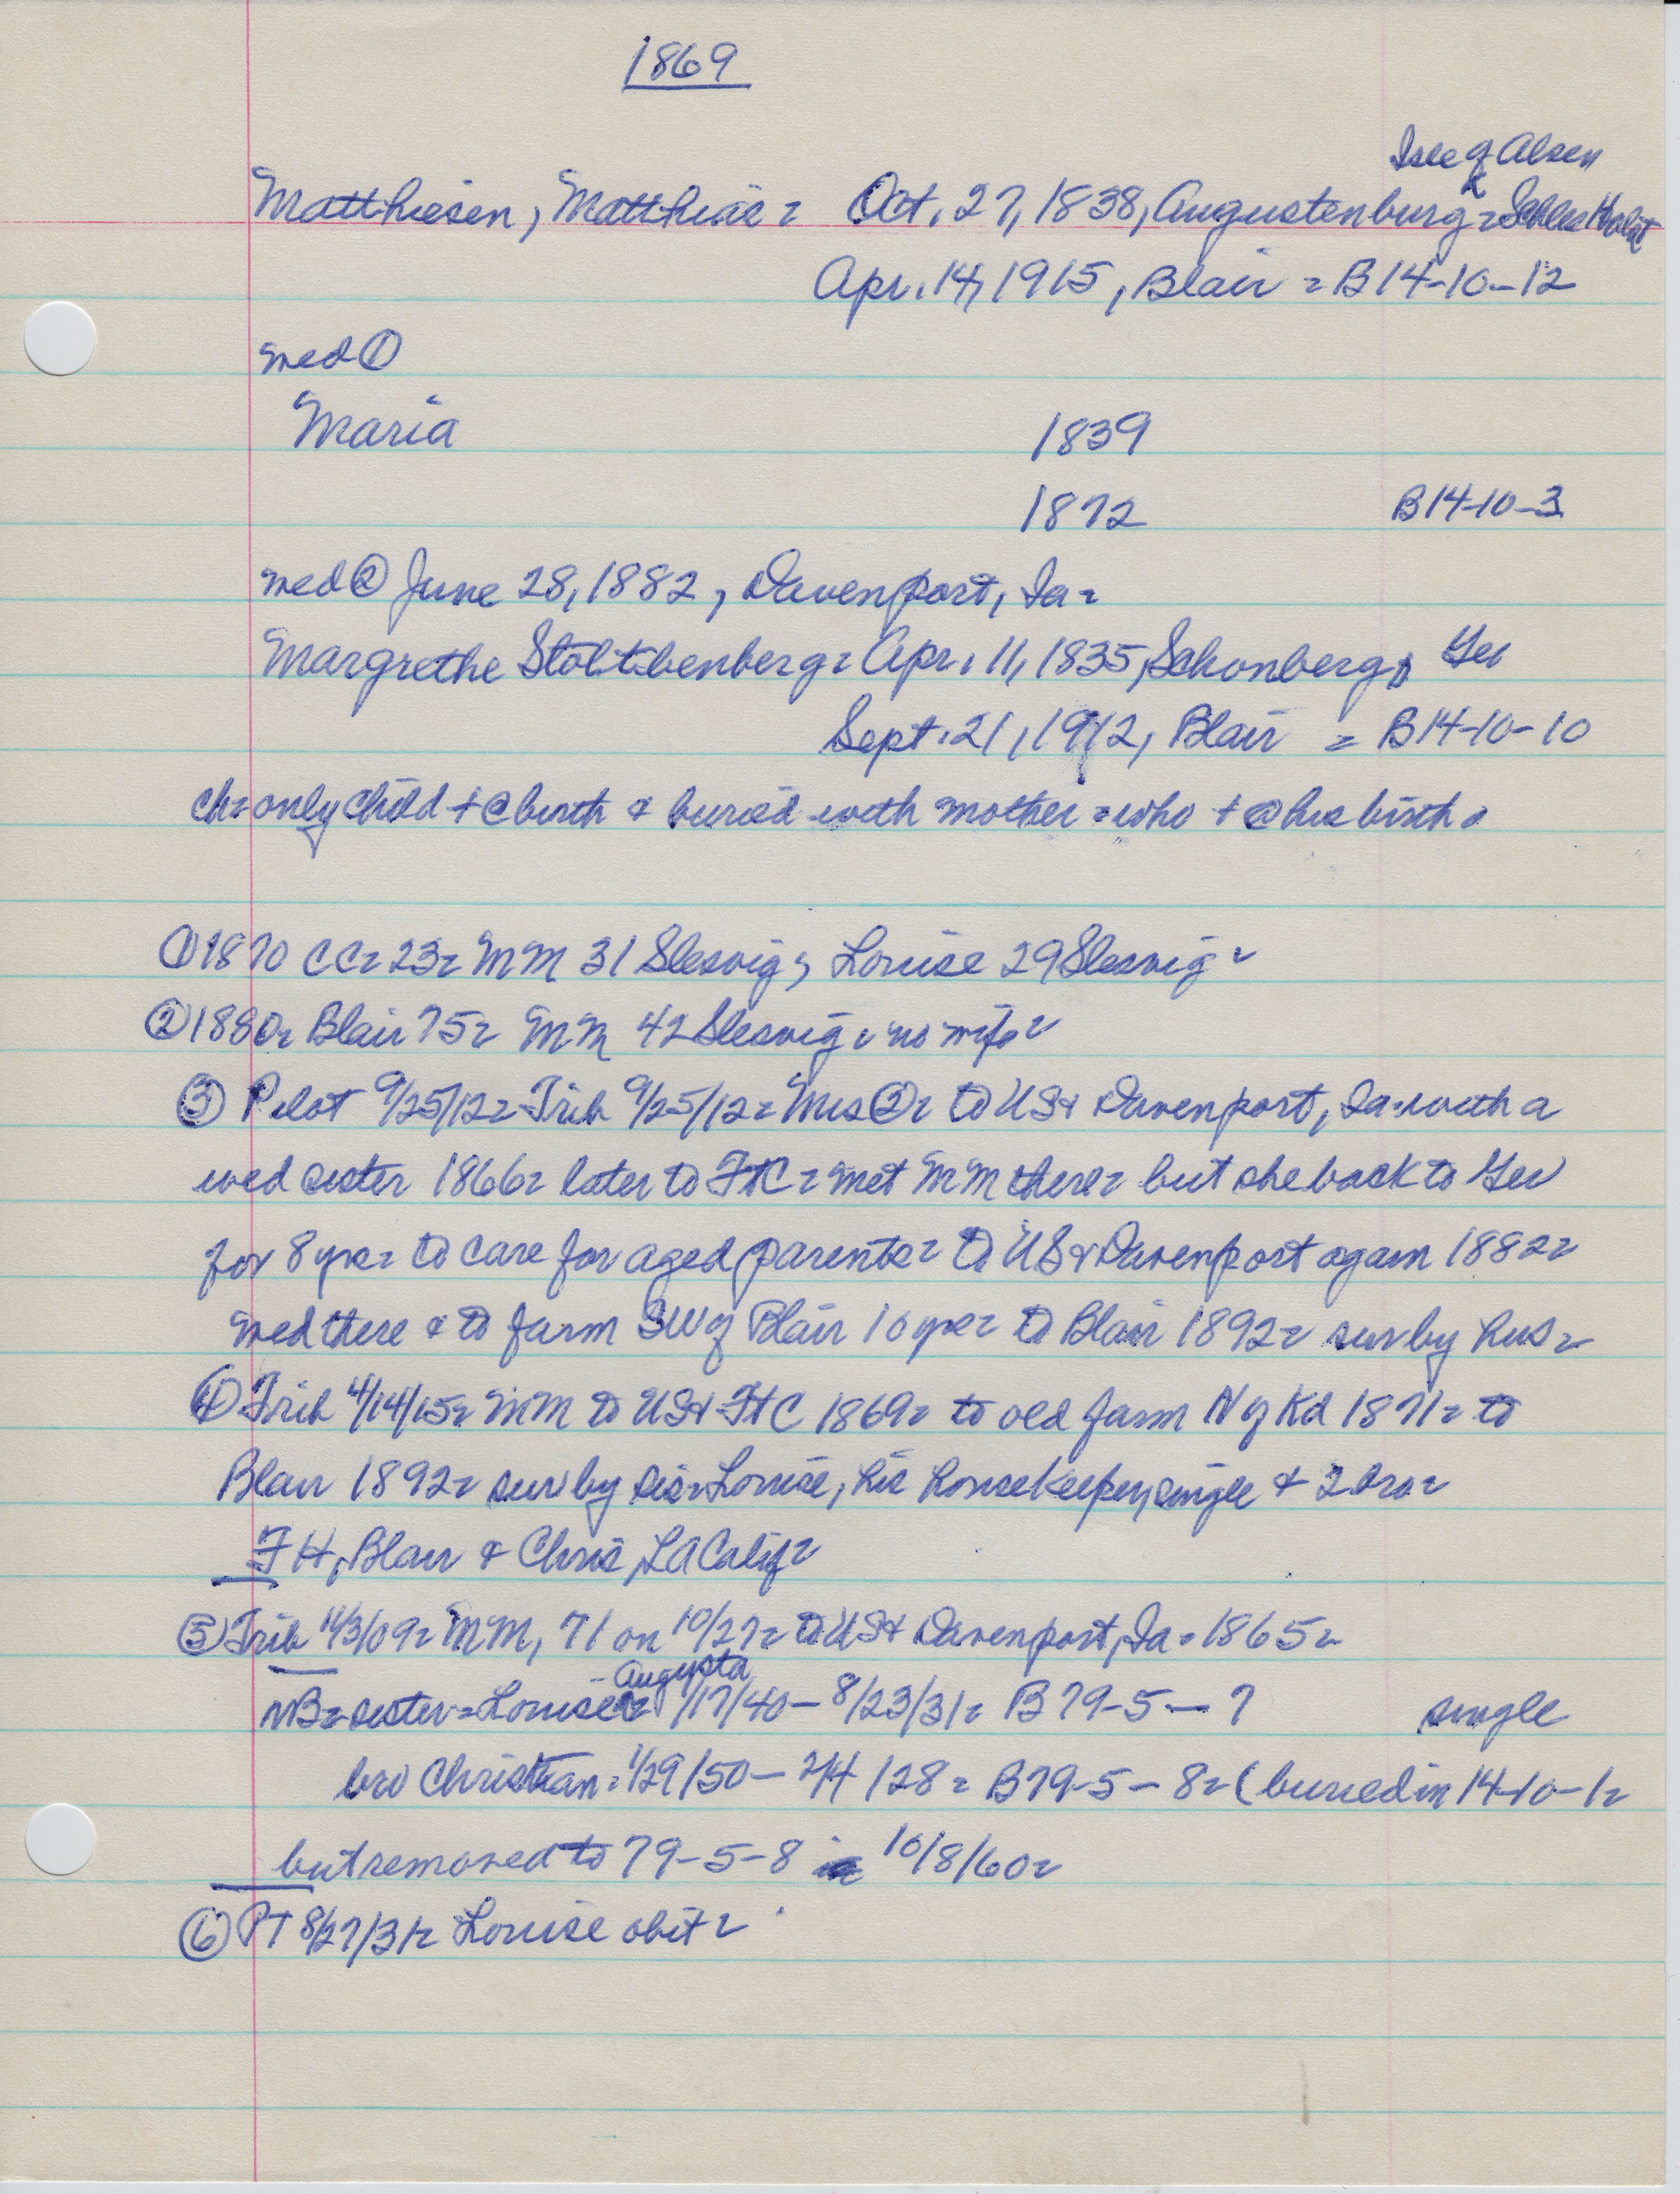 1869
Isle of Alsen
Matthiesen, Matthias = Oct. 27, 1838, Augustenburg = Schles Holst
Apr. 14, 1915, Blair = B14-10-12
med ①
Maria 1839
1872 B14-10-3
med ② June 28, 1882, Davenport, Ia =
Margrethe Stoltibenberg = Apr. 11, 1835, Schonberg, Ger
Sept. 21, 1912, Blair = B14-10-10
ch = only child + @ birth & buried with mother = who + @ his birth =
① 1870 CC = 23 = MM 31 Slesvig, Louise 29 Slesvig =
② 1880 = Blair 75 = MM 42 Slesvig = no wife =
③ Pilot 9/25/12 = Trib 9/25/12 = Mrs ② = to US & Davenport, Ia = with a
wed sister 1866 = later to FtC = met MM there = but she back to Ger
for 8 yrs = to care for aged parents = to US & Davenport again 1882 =
med there & to farm SW of Blair 10 yrs = to Blair 1892 = sur by hus =
④ Trib 4/14/15 = MM to US & FtC 1869 = to old farm N of Kd 1871 = to
Blair 1892 = sur by sis = Louise, his housekeeper, single & 2 bro =
FH, Blair & Chris, LA Calif =
⑤ Trib 11/3/09 = MM, 71 on 10/27 = to US & Davenport, Ia = 1865 =
Augusta
NB = sister = Louise = 1/17/40 - 8/23/31 = B79-5-7 single
bro Christian = 1/29/50 - 2/4/28 = B79-5-8 = (buried in 14-10-1 =
but removed to 79-5-8 10/8/60 =
⑥ PT 8/27/31 = Louise obit =